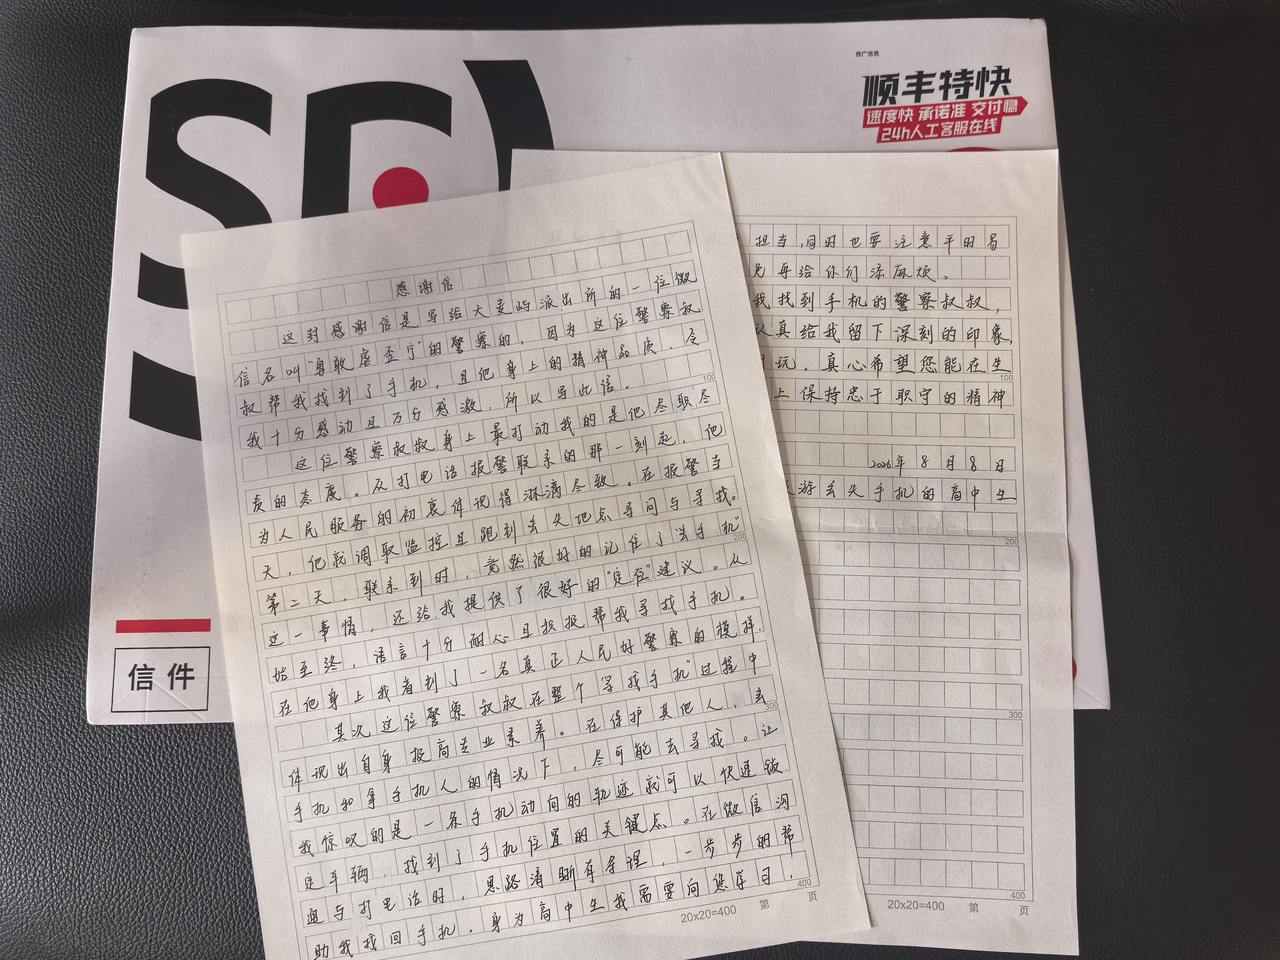 推广信息
顺丰特快
速度快 承诺准 交付稳
24h人工客服在线
信件
感谢信
这封感谢信是写给大麦屿派出所的一位微
信名叫“勇敢虐歪宁”的警察的,因为这位警察叔
叔帮我找到了手机,且他身上的精神品质,令
我十分感动且万分感激,所以写此信。
100
这位警察叔叔身上最打动我的是他尽职尽
责的态度。从打电话报警联系的那一刻起,他
为人民服务的初衷体现得淋漓尽致。在报警当
天,他就调取监控且跑到丢失地点寻问与寻找。
第二天,联系到时,竟然很好的记住了“丢手机”
200
这一事情,还给我提供了很好的“定位”建议。从
始至终,语言十分耐心且积极帮我寻找手机。
在他身上我看到了一名真正人民好警察的模样.
其次这位警察叔叔在整个“寻找手机”过程中
体现出自身极高专业素养。在保护其他人,丢
300
手机和拿手机人的情况下,尽可能去寻找。让
我惊叹的是一条手机动向的轨迹就可以快速锁
定车辆,找到了手机位置的关键点。在微信沟
通与打电话时,思路清晰有条理,一步步的帮
助我找回手机,身为高中生我需要向您学习,
400
20x20=400 第 页
担当,同时也要注意平时易
免再给你们添麻烦。
我找到手机的警察叔叔,
认真给我留下深刻的印象,
玩,真心希望您能在生
100
上保持忠于职守的精神
2026年8月8日
游丢失手机的高中生
200
300
400
20x20=400 第 页